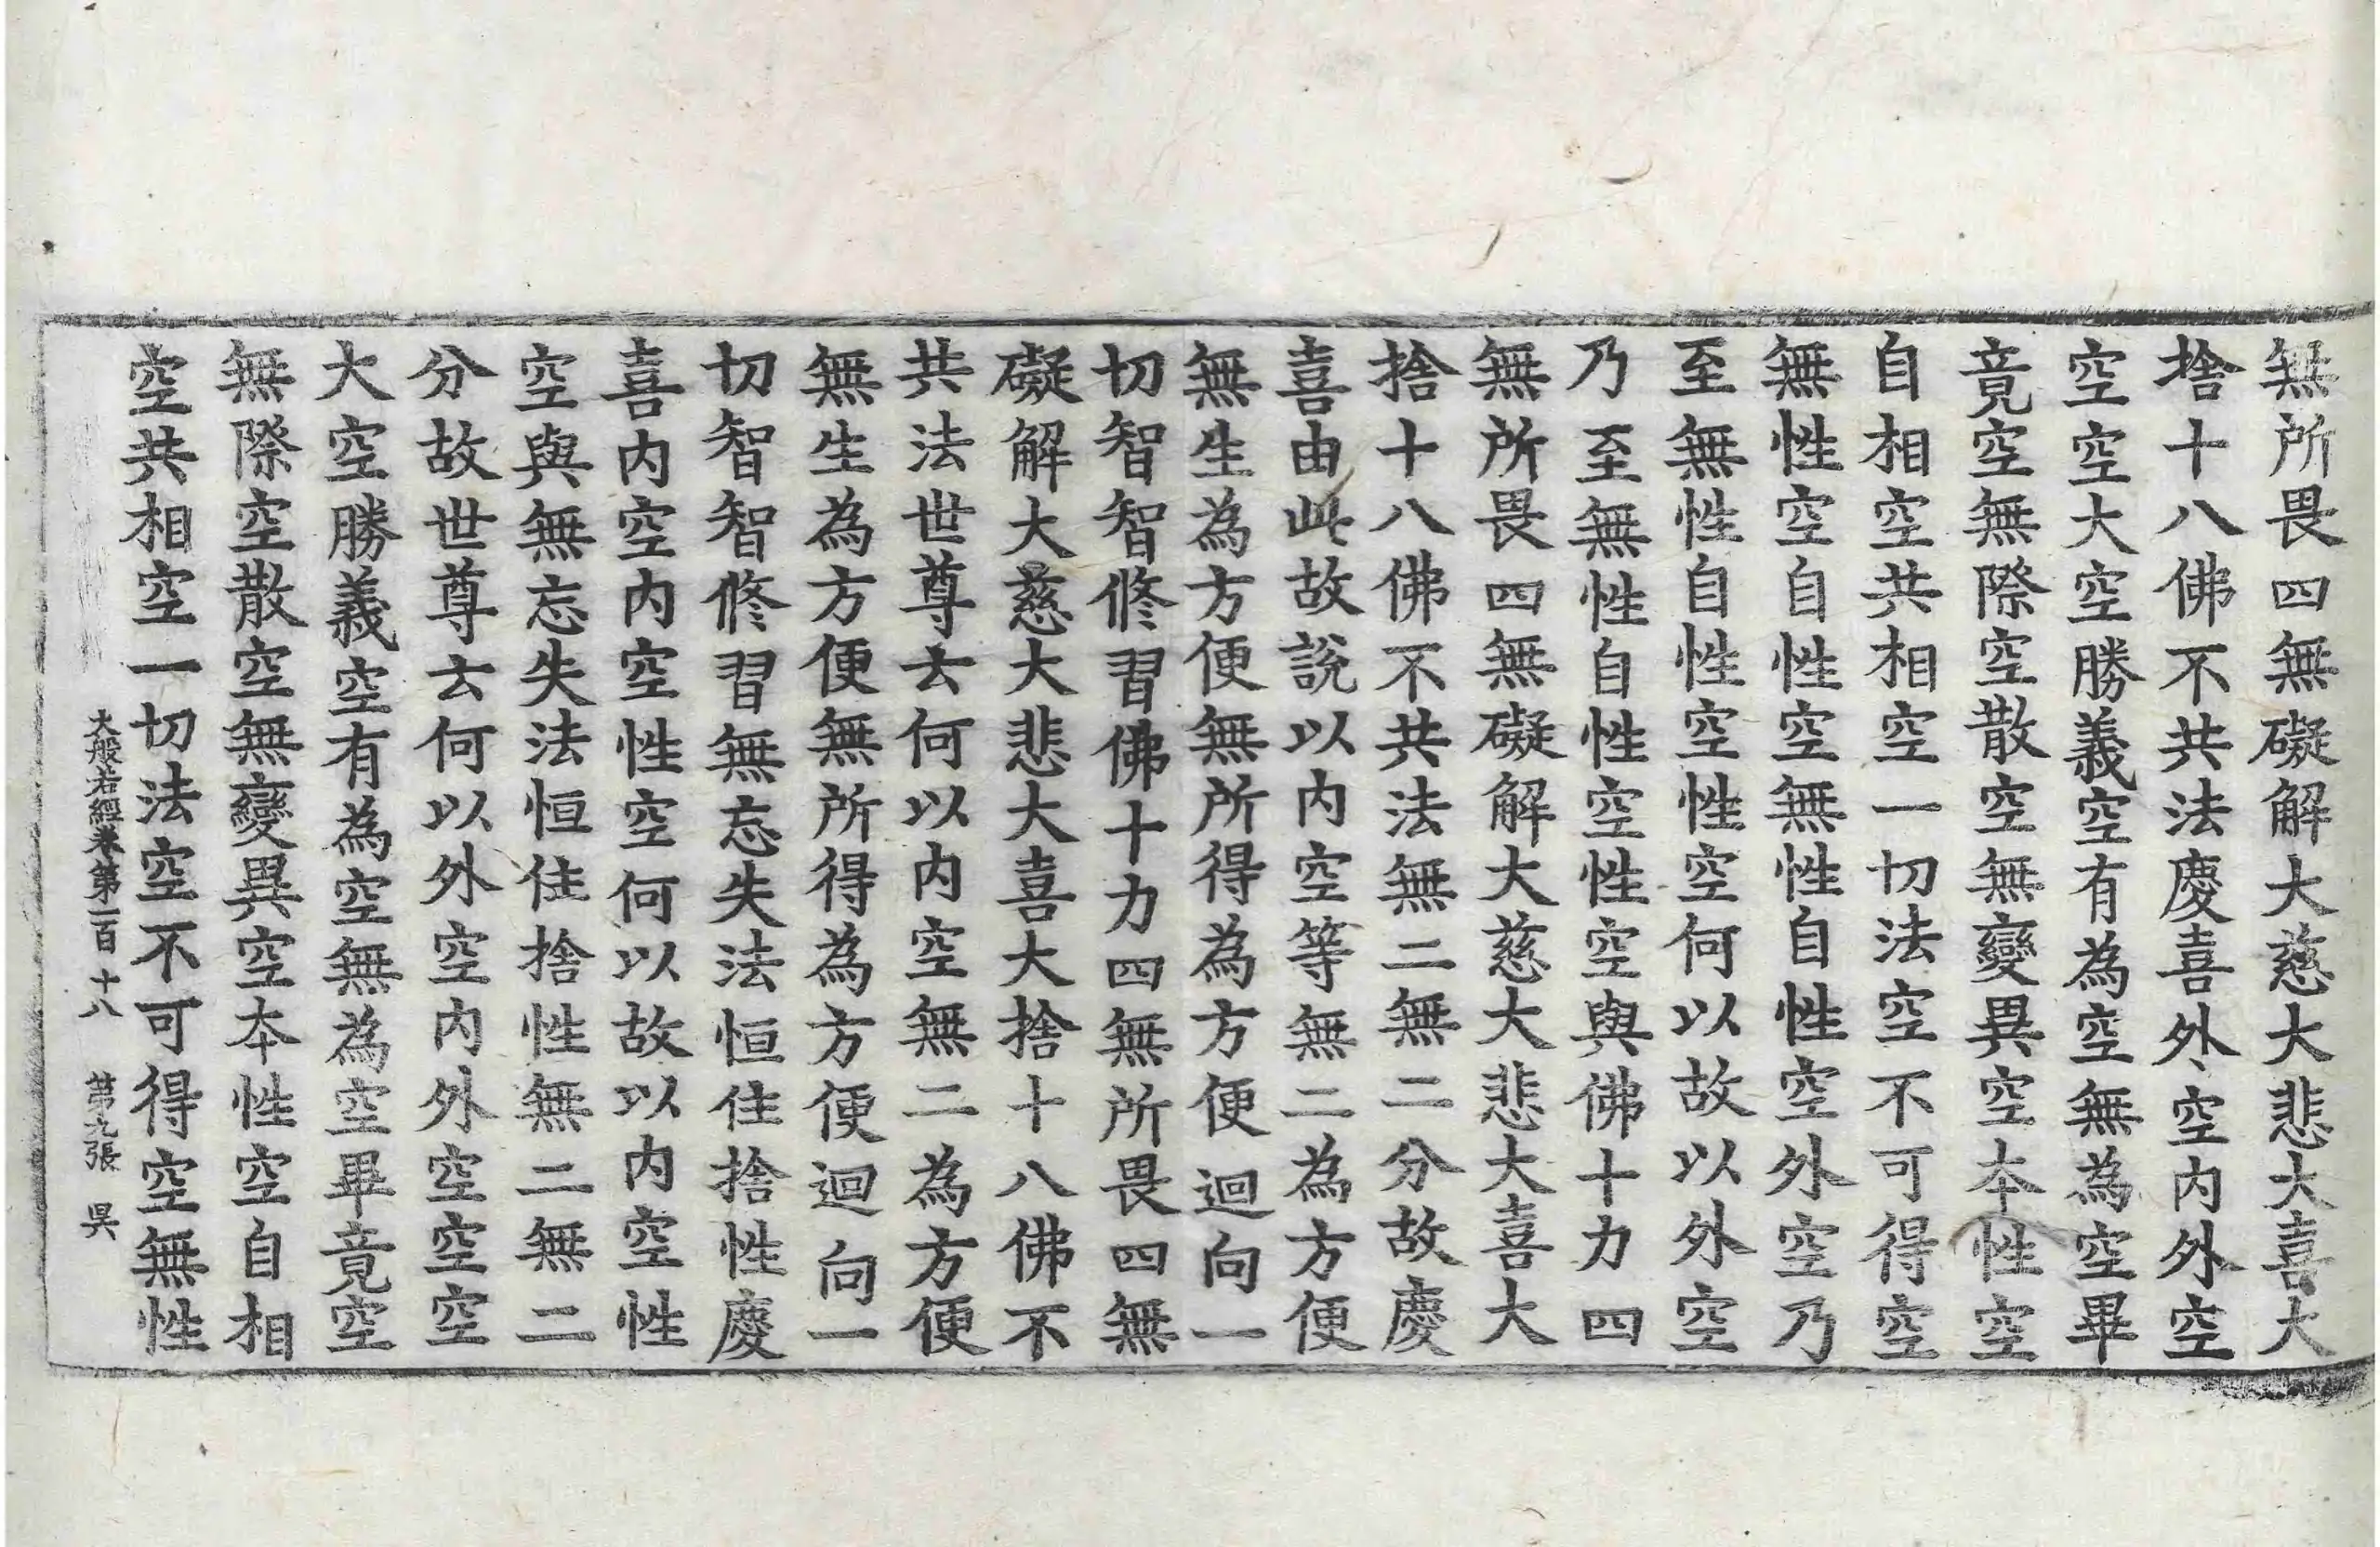 無所畏四無礙解大慈大悲大喜大
捨十八佛不共法慶喜外空內外空
空空大空勝義空有為空無為空畢
竟空無際空散空無變異空本性空
自相空共相空一切法空不可得空
無性空自性空無性自性空外空乃
至無性自性空性空何以故以外空
乃至無性自性空性空與佛十力四
無所畏四無礙解大慈大悲大喜大
捨十八佛不共法無二無二分故慶
喜由此故說以內空等無二為方便
無生為方便無所得為方便迴向一
切智智修習佛十力四無所畏四無
礙解大慈大悲大喜大捨十八佛不
共法世尊云何以內空無二為方便
無生為方便無所得為方便迴向一
切智智修習無忘失法恒住捨性慶
喜內空內空性空何以故以內空性
空與無忘失法恒住捨性無二無二
分故世尊云何以外空內外空空空
大空勝義空有為空無為空畢竟空
無際空散空無變異空本性空自相
空共相空一切法空不可得空無性
大般若經卷第一百十八 第九張 吳